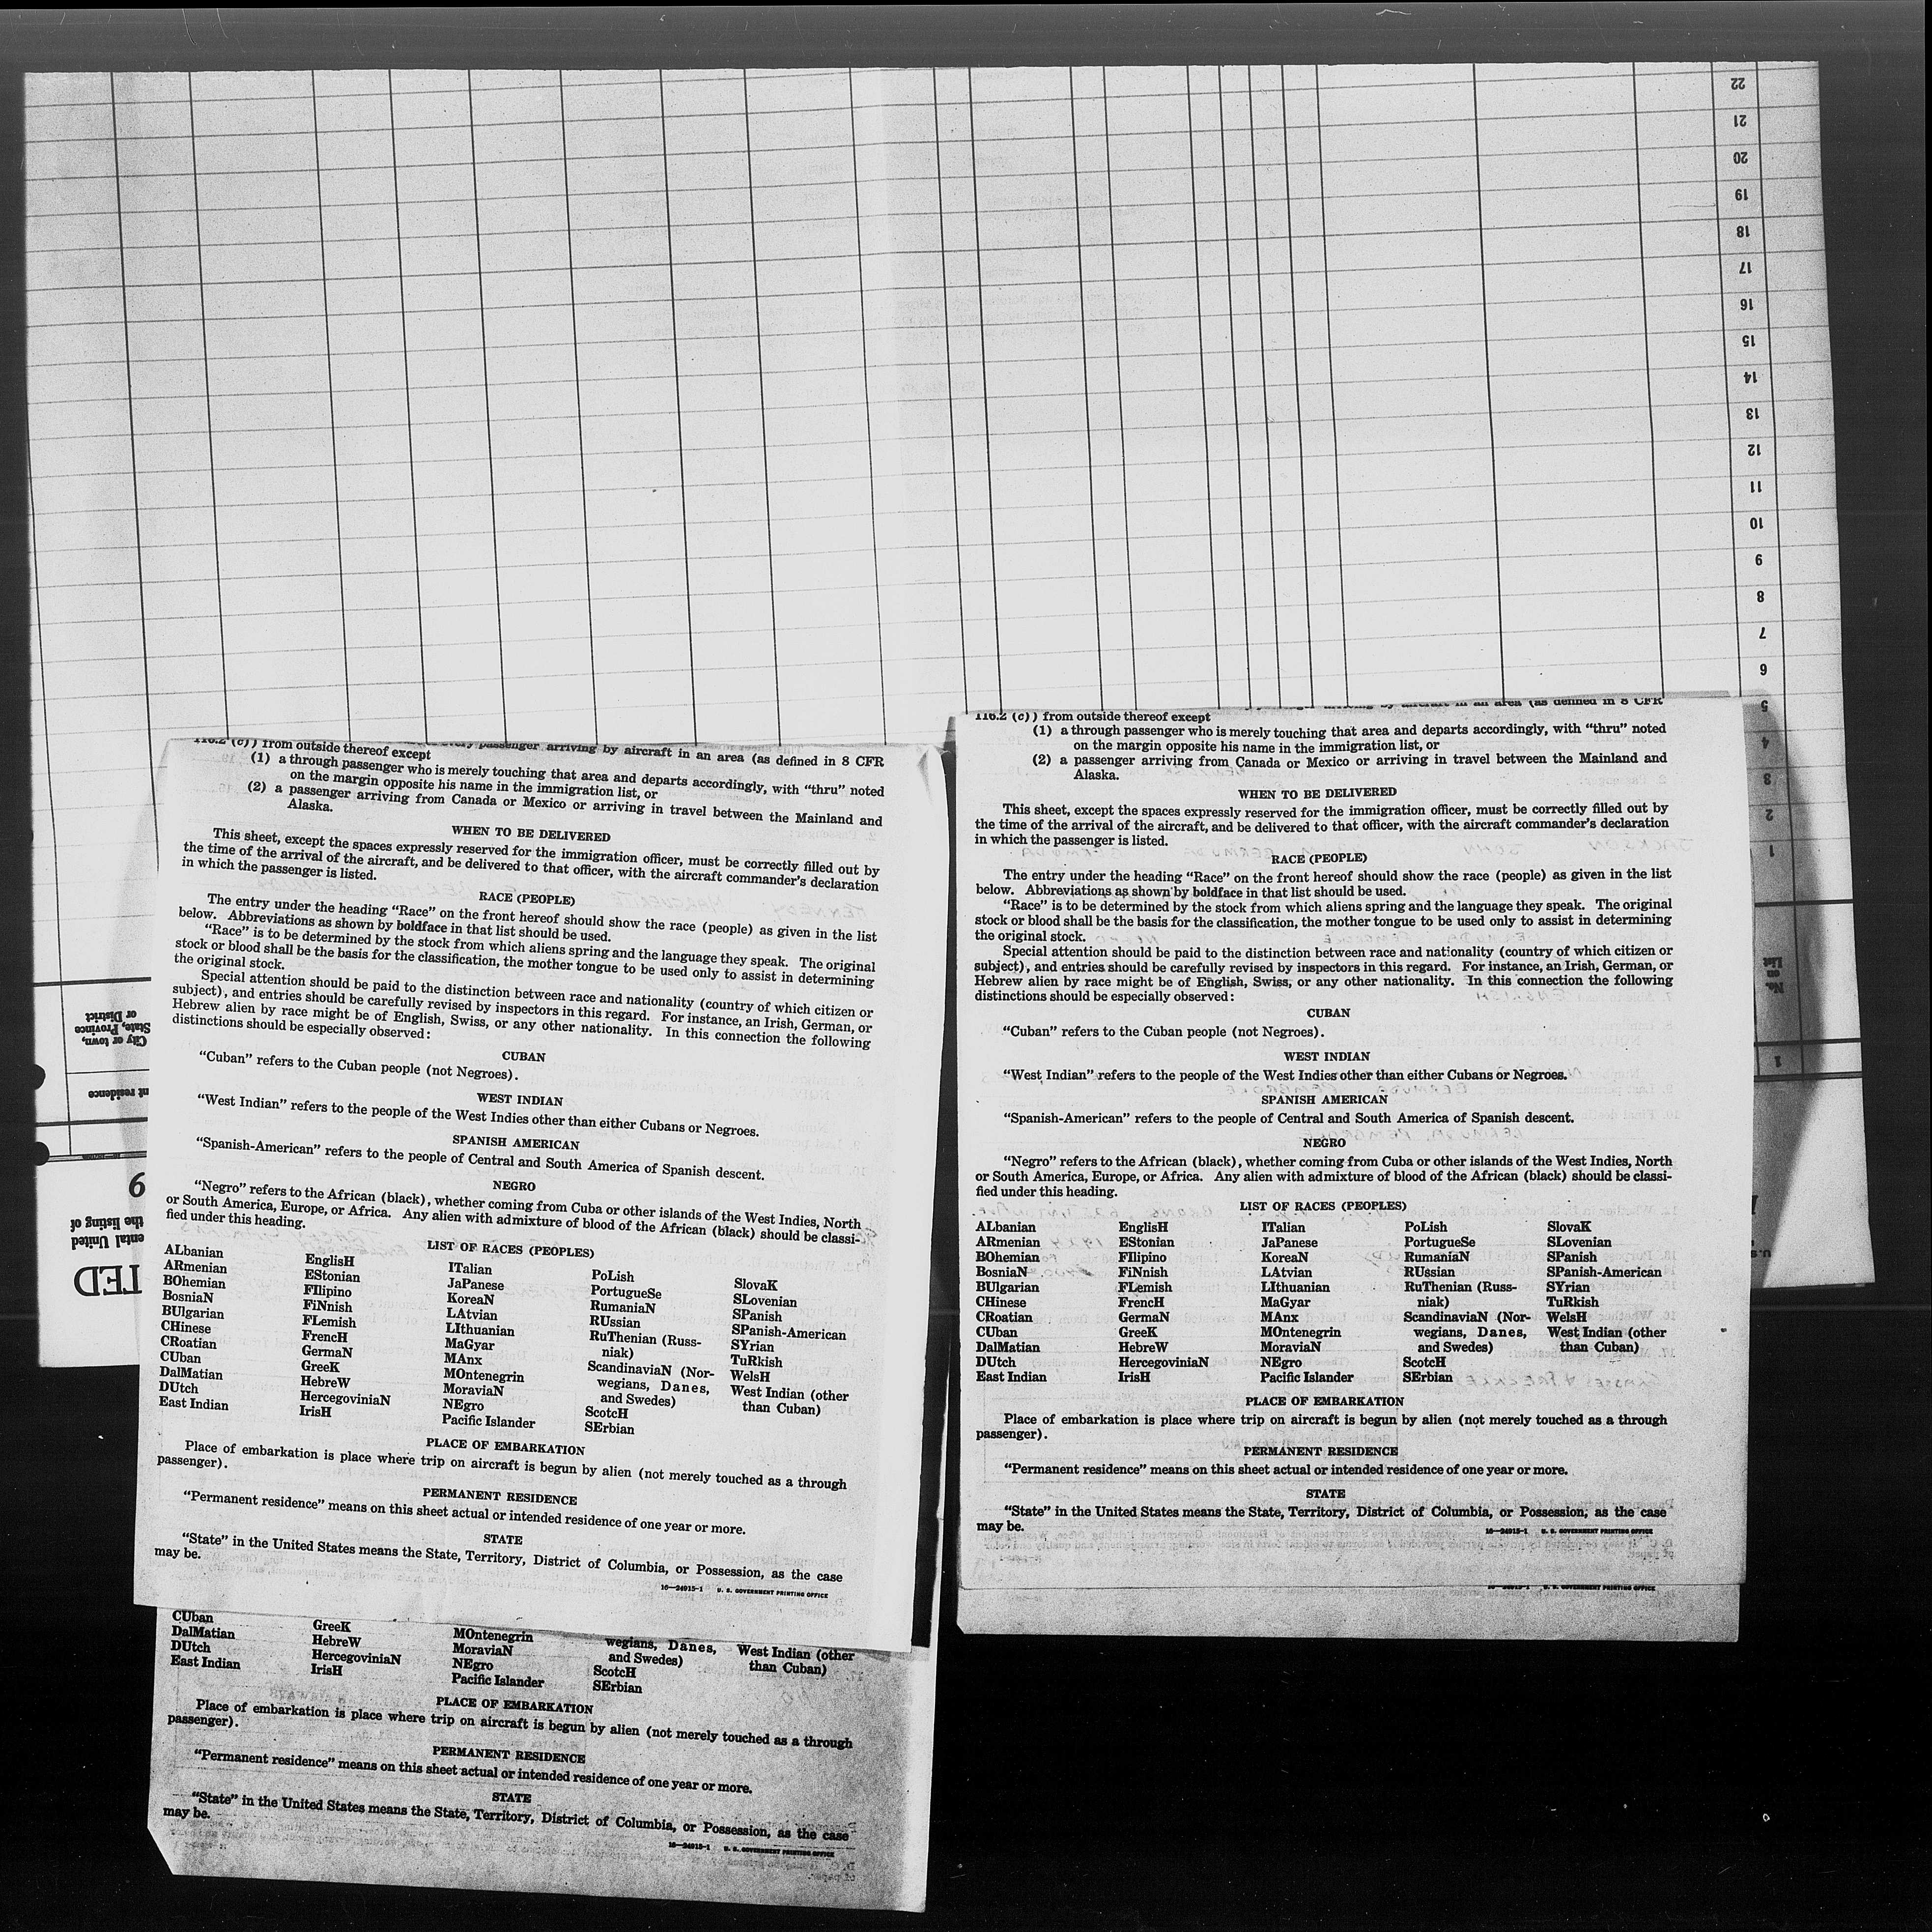 22
21
20
19
18
17
16
15
14
13
12
11
10
9
8
7
6
5
4
3
2
1
No.
on
List
1
City or town,
State, Province
or District
nt residence
9
the listing of
ental United
TED
every passenger arriving by aircraft in an area (as defined in 8 CFR
116.2 (c)) from outside thereof except
(1) a through passenger who is merely touching that area and departs accordingly, with “thru” noted
on the margin opposite his name in the immigration list, or
(2) a passenger arriving from Canada or Mexico or arriving in travel between the Mainland and
Alaska.
WHEN TO BE DELIVERED
This sheet, except the spaces expressly reserved for the immigration officer, must be correctly filled out by
the time of the arrival of the aircraft, and be delivered to that officer, with the aircraft commander’s declaration
in which the passenger is listed.
RACE (PEOPLE)
The entry under the heading “Race” on the front hereof should show the race (people) as given in the list
below. Abbreviations as shown by boldface in that list should be used.
“Race” is to be determined by the stock from which aliens spring and the language they speak. The original
stock or blood shall be the basis for the classification, the mother tongue to be used only to assist in determining
the original stock.
Special attention should be paid to the distinction between race and nationality (country of which citizen or
subject), and entries should be carefully revised by inspectors in this regard. For instance, an Irish, German, or
Hebrew alien by race might be of English, Swiss, or any other nationality. In this connection the following
distinctions should be especially observed:
CUBAN
“Cuban” refers to the Cuban people (not Negroes).
WEST INDIAN
“West Indian” refers to the people of the West Indies other than either Cubans or Negroes.
SPANISH AMERICAN
“Spanish-American” refers to the people of Central and South America of Spanish descent.
NEGRO
“Negro” refers to the African (black), whether coming from Cuba or other islands of the West Indies, North
or South America, Europe, or Africa. Any alien with admixture of blood of the African (black) should be classi-
fied under this heading.
LIST OF RACES (PEOPLES)
ALbanian
ARmenian
BOhemian
BosniaN
BUlgarian
CHinese
CRoatian
CUban
DalMatian
DUtch
East Indian
EnglisH
EStonian
FIlipino
FiNnish
FLemish
FrencH
GermaN
GreeK
HebreW
HercegoviniaN
IrisH
ITalian
JaPanese
KoreaN
LAtvian
LIthuanian
MaGyar
MAnx
MOntenegrin
MoraviaN
NEgro
Pacific Islander
PoLish
PortugueSe
RumaniaN
RUssian
RuThenian (Russ-
niak)
ScandinaviaN (Nor-
wegians, Danes,
and Swedes)
ScotcH
SErbian
SlovaK
SLovenian
SPanish
SPanish-American
SYrian
TuRkish
WelsH
West Indian (other
than Cuban)
PLACE OF EMBARKATION
Place of embarkation is place where trip on aircraft is begun by alien (not merely touched as a through
passenger).
PERMANENT RESIDENCE
“Permanent residence” means on this sheet actual or intended residence of one year or more.
STATE
“State” in the United States means the State, Territory, District of Columbia, or Possession, as the case
may be.
16—24915-1 U. S. GOVERNMENT PRINTING OFFICE
CUban
DalMatian
DUtch
East Indian
GreeK
HebreW
HercegoviniaN
IrisH
MOntenegrin
MoraviaN
NEgro
Pacific Islander
wegians, Danes,
and Swedes)
ScotcH
SErbian
West Indian (other
than Cuban)
PLACE OF EMBARKATION
Place of embarkation is place where trip on aircraft is begun by alien (not merely touched as a through
passenger).
PERMANENT RESIDENCE
“Permanent residence” means on this sheet actual or intended residence of one year or more.
STATE
“State” in the United States means the State, Territory, District of Columbia, or Possession, as the case
may be.
16—24915-1 U. S. GOVERNMENT PRINTING OFFICE
passenger arriving by aircraft in an area (as defined in 8 CFR
116.2 (c)) from outside thereof except
(1) a through passenger who is merely touching that area and departs accordingly, with “thru” noted
on the margin opposite his name in the immigration list, or
(2) a passenger arriving from Canada or Mexico or arriving in travel between the Mainland and
Alaska.
WHEN TO BE DELIVERED
This sheet, except the spaces expressly reserved for the immigration officer, must be correctly filled out by
the time of the arrival of the aircraft, and be delivered to that officer, with the aircraft commander’s declaration
in which the passenger is listed.
RACE (PEOPLE)
The entry under the heading “Race” on the front hereof should show the race (people) as given in the list
below. Abbreviations as shown by boldface in that list should be used.
“Race” is to be determined by the stock from which aliens spring and the language they speak. The original
stock or blood shall be the basis for the classification, the mother tongue to be used only to assist in determining
the original stock.
Special attention should be paid to the distinction between race and nationality (country of which citizen or
subject), and entries should be carefully revised by inspectors in this regard. For instance, an Irish, German, or
Hebrew alien by race might be of English, Swiss, or any other nationality. In this connection the following
distinctions should be especially observed:
CUBAN
“Cuban” refers to the Cuban people (not Negroes).
WEST INDIAN
“West Indian” refers to the people of the West Indies other than either Cubans or Negroes.
SPANISH AMERICAN
“Spanish-American” refers to the people of Central and South America of Spanish descent.
NEGRO
“Negro” refers to the African (black), whether coming from Cuba or other islands of the West Indies, North
or South America, Europe, or Africa. Any alien with admixture of blood of the African (black) should be classi-
fied under this heading.
LIST OF RACES (PEOPLES)
ALbanian
ARmenian
BOhemian
BosniaN
BUlgarian
CHinese
CRoatian
CUban
DalMatian
DUtch
East Indian
EnglisH
EStonian
FIlipino
FiNnish
FLemish
FrencH
GermaN
GreeK
HebreW
HercegoviniaN
IrisH
ITalian
JaPanese
KoreaN
LAtvian
LIthuanian
MaGyar
MAnx
MOntenegrin
MoraviaN
NEgro
Pacific Islander
PoLish
PortugueSe
RumaniaN
RUssian
RuThenian (Russ-
niak)
ScandinaviaN (Nor-
wegians, Danes,
and Swedes)
ScotcH
SErbian
SlovaK
SLovenian
SPanish
SPanish-American
SYrian
TuRkish
WelsH
West Indian (other
than Cuban)
PLACE OF EMBARKATION
Place of embarkation is place where trip on aircraft is begun by alien (not merely touched as a through
passenger).
PERMANENT RESIDENCE
“Permanent residence” means on this sheet actual or intended residence of one year or more.
STATE
“State” in the United States means the State, Territory, District of Columbia, or Possession, as the case
may be.
16—24915-1 U. S. GOVERNMENT PRINTING OFFICE
16—24915-1 U. S. GOVERNMENT PRINTING OFFICE